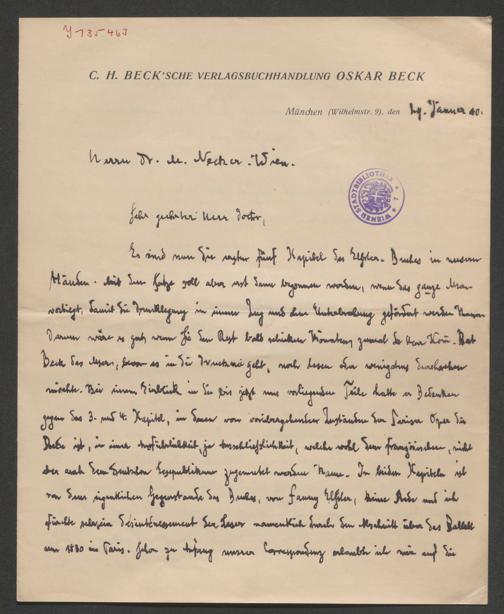 Y 135.463
C. H. BECK'SCHE VERLAGSBUCHHANDLUNG OSKAR BECK
München (Wilhelmstr. 9), den 29. Januar 40.
WIENER STADTBIBLIOTHEK
Herrn Dr. M. Necker-Wien.
Sehr geehrter Herr Doctor,
Es sind nun die ersten fünf Kapitel des Elssler-Buches in unseren
Händen. Mit dem Satze soll aber erst dann begonnen werden, wenn das ganze Manu-
vorliegt, damit die Drucklegung in einem Zug und ohne Unterbrechung gefördert werden kann
Darum wäre es gut, wenn Sie den Rest bald schicken könnten, zumal da Herr Rat
Beck das Manuscr., bevor es in die Druckerei geht, noch lesen oder wenigstens durchsehen
möchte. Bei einem Einblick in die bis jetzt uns vorliegenden Teile hatte er Bedenken
gegen das 3. und 4. Kapitel, in denen von vorübergehenden Zuständen der Pariser Oper die
Rede ist, in einer Ausführlichkeit, ja Ausschliesslichkeit, welche wohl dem französischen, nicht
aber auch dem deutschen Lesepublikum zugemutet werden kann. In beiden Kapiteln ist
von dem eigentlichen Gegenstande des Buches, von Fanny Elssler, keine Rede und ich
fürchte ein Désintéressement der Leser namentlich durch den Abschnitt über das Ballett
um 1830 in Paris. Schon zu Anfang unserer Correspondenz erlaubte ich mir auf die